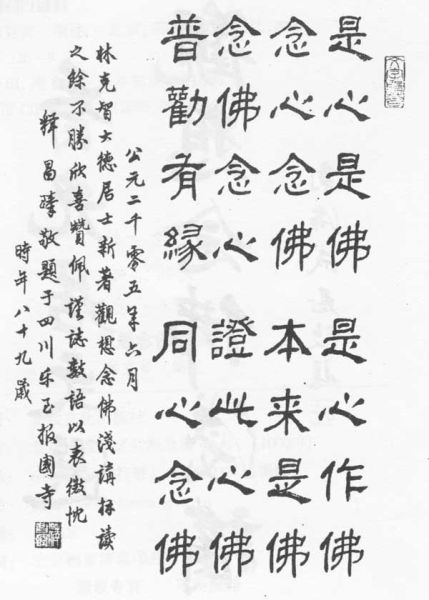 是心是佛 是心作佛
念心念佛 本来是佛
念佛念心 證此心佛
普勸有緣 同心念佛
公元二千零五年六月
林克智大德居士新著觀想念佛淺講拜讀
之餘不勝欣喜贊佩謹誌數語以表微忱
釋昌臻敬題于四川乐至报國寺
時年八十九歲